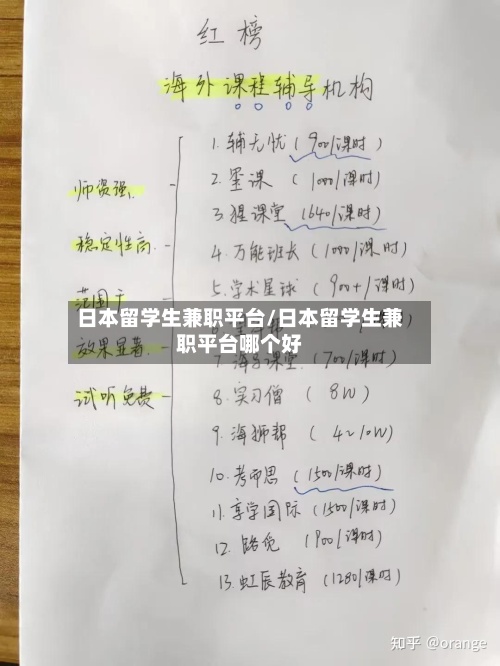 红榜
海外课程辅导机构
师资强
稳定性高
范围广
效果显著
试听免费
1. 辅无忧 (900/课时)
2. 墨课 (1000/课时)
3. 猩课堂 (1640/课时)
4. 万能班长 (1000/课时)
5. 学术星球 (900+/课时)
日本留学生兼职平台/日本留学生兼
职平台哪个好
7. 海外课堂 (700/课时)
8. 实习僧 (8W)
9. 海狮帮 (4~10W)
10. 考而思 (1500/课时)
11. 享学国际 (1500/课时)
12. 路觅 1900/课时)
13. 虹辰教育 (1280/课时)
知乎 @orange